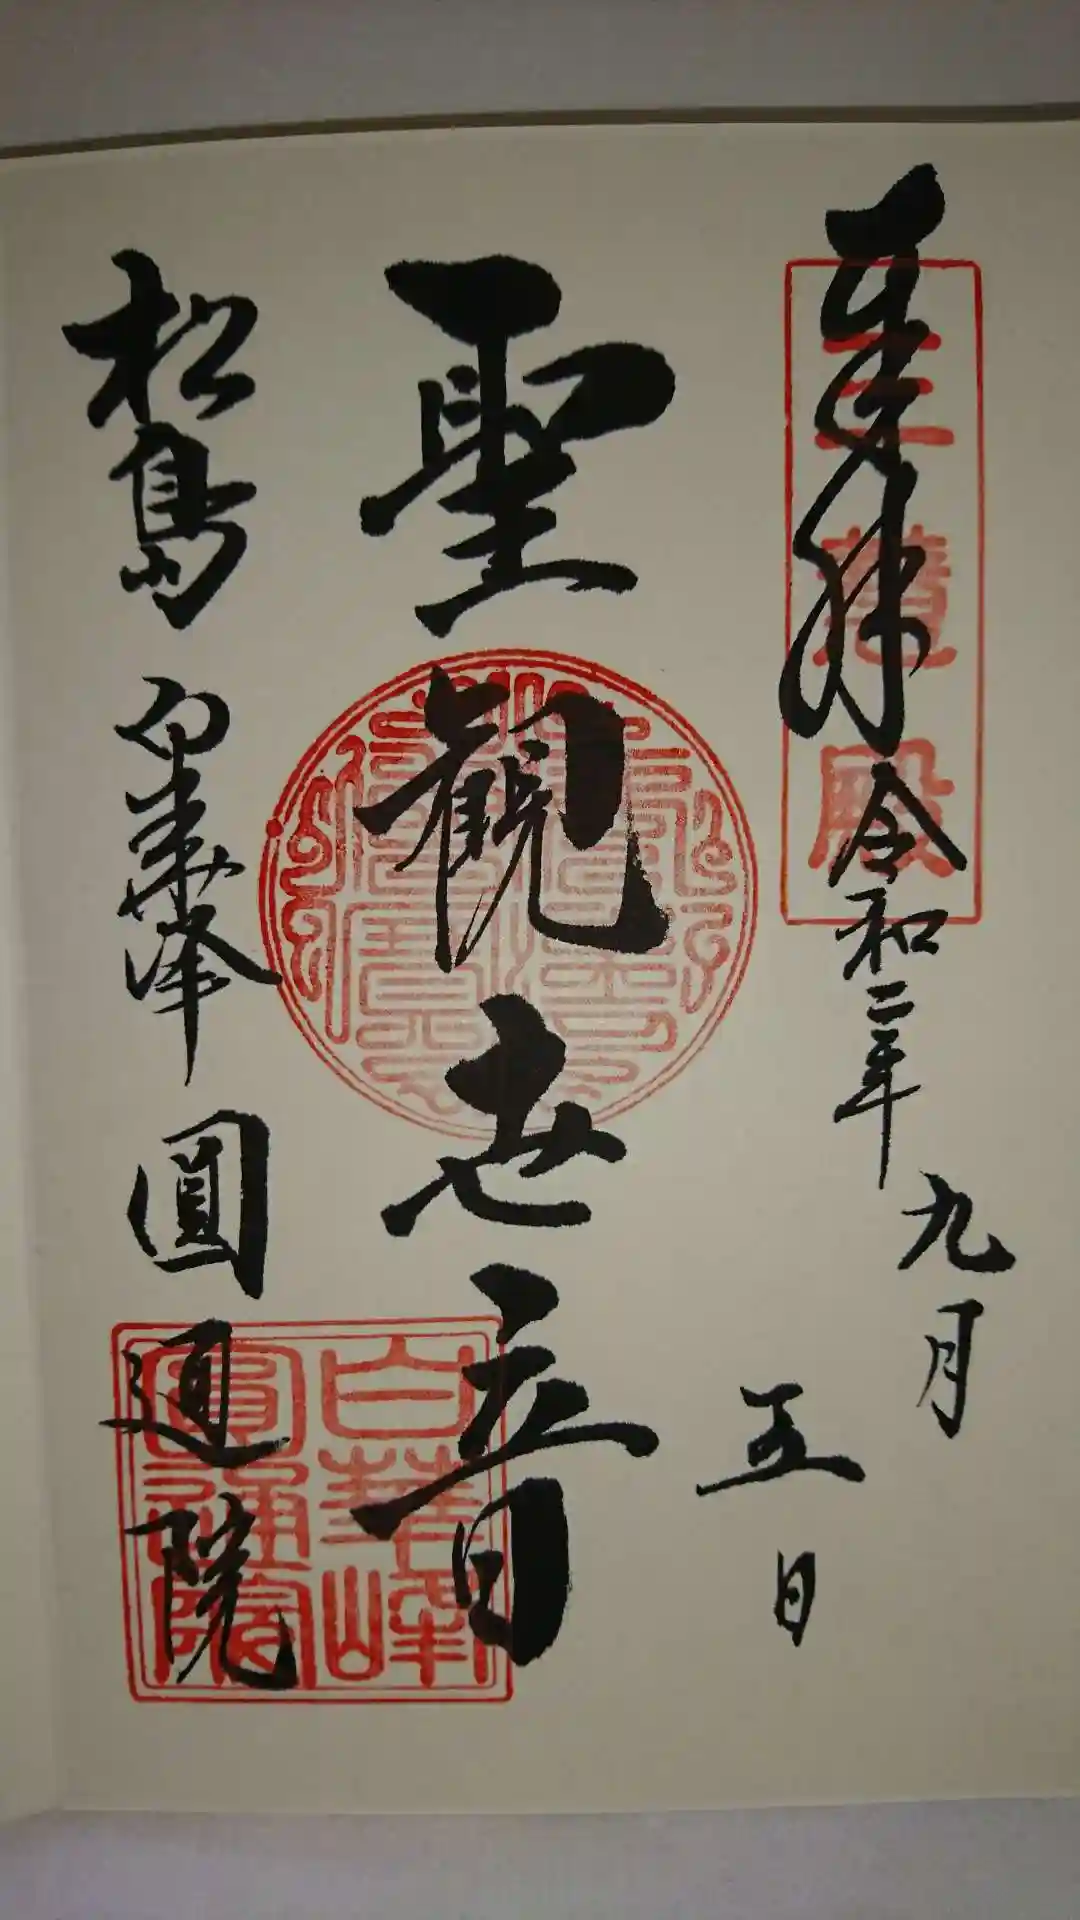 奉拝 令和二年九月
五日
三慧殿
聖観世音
松島 白華峰 圓通院
白華峰
圓通院